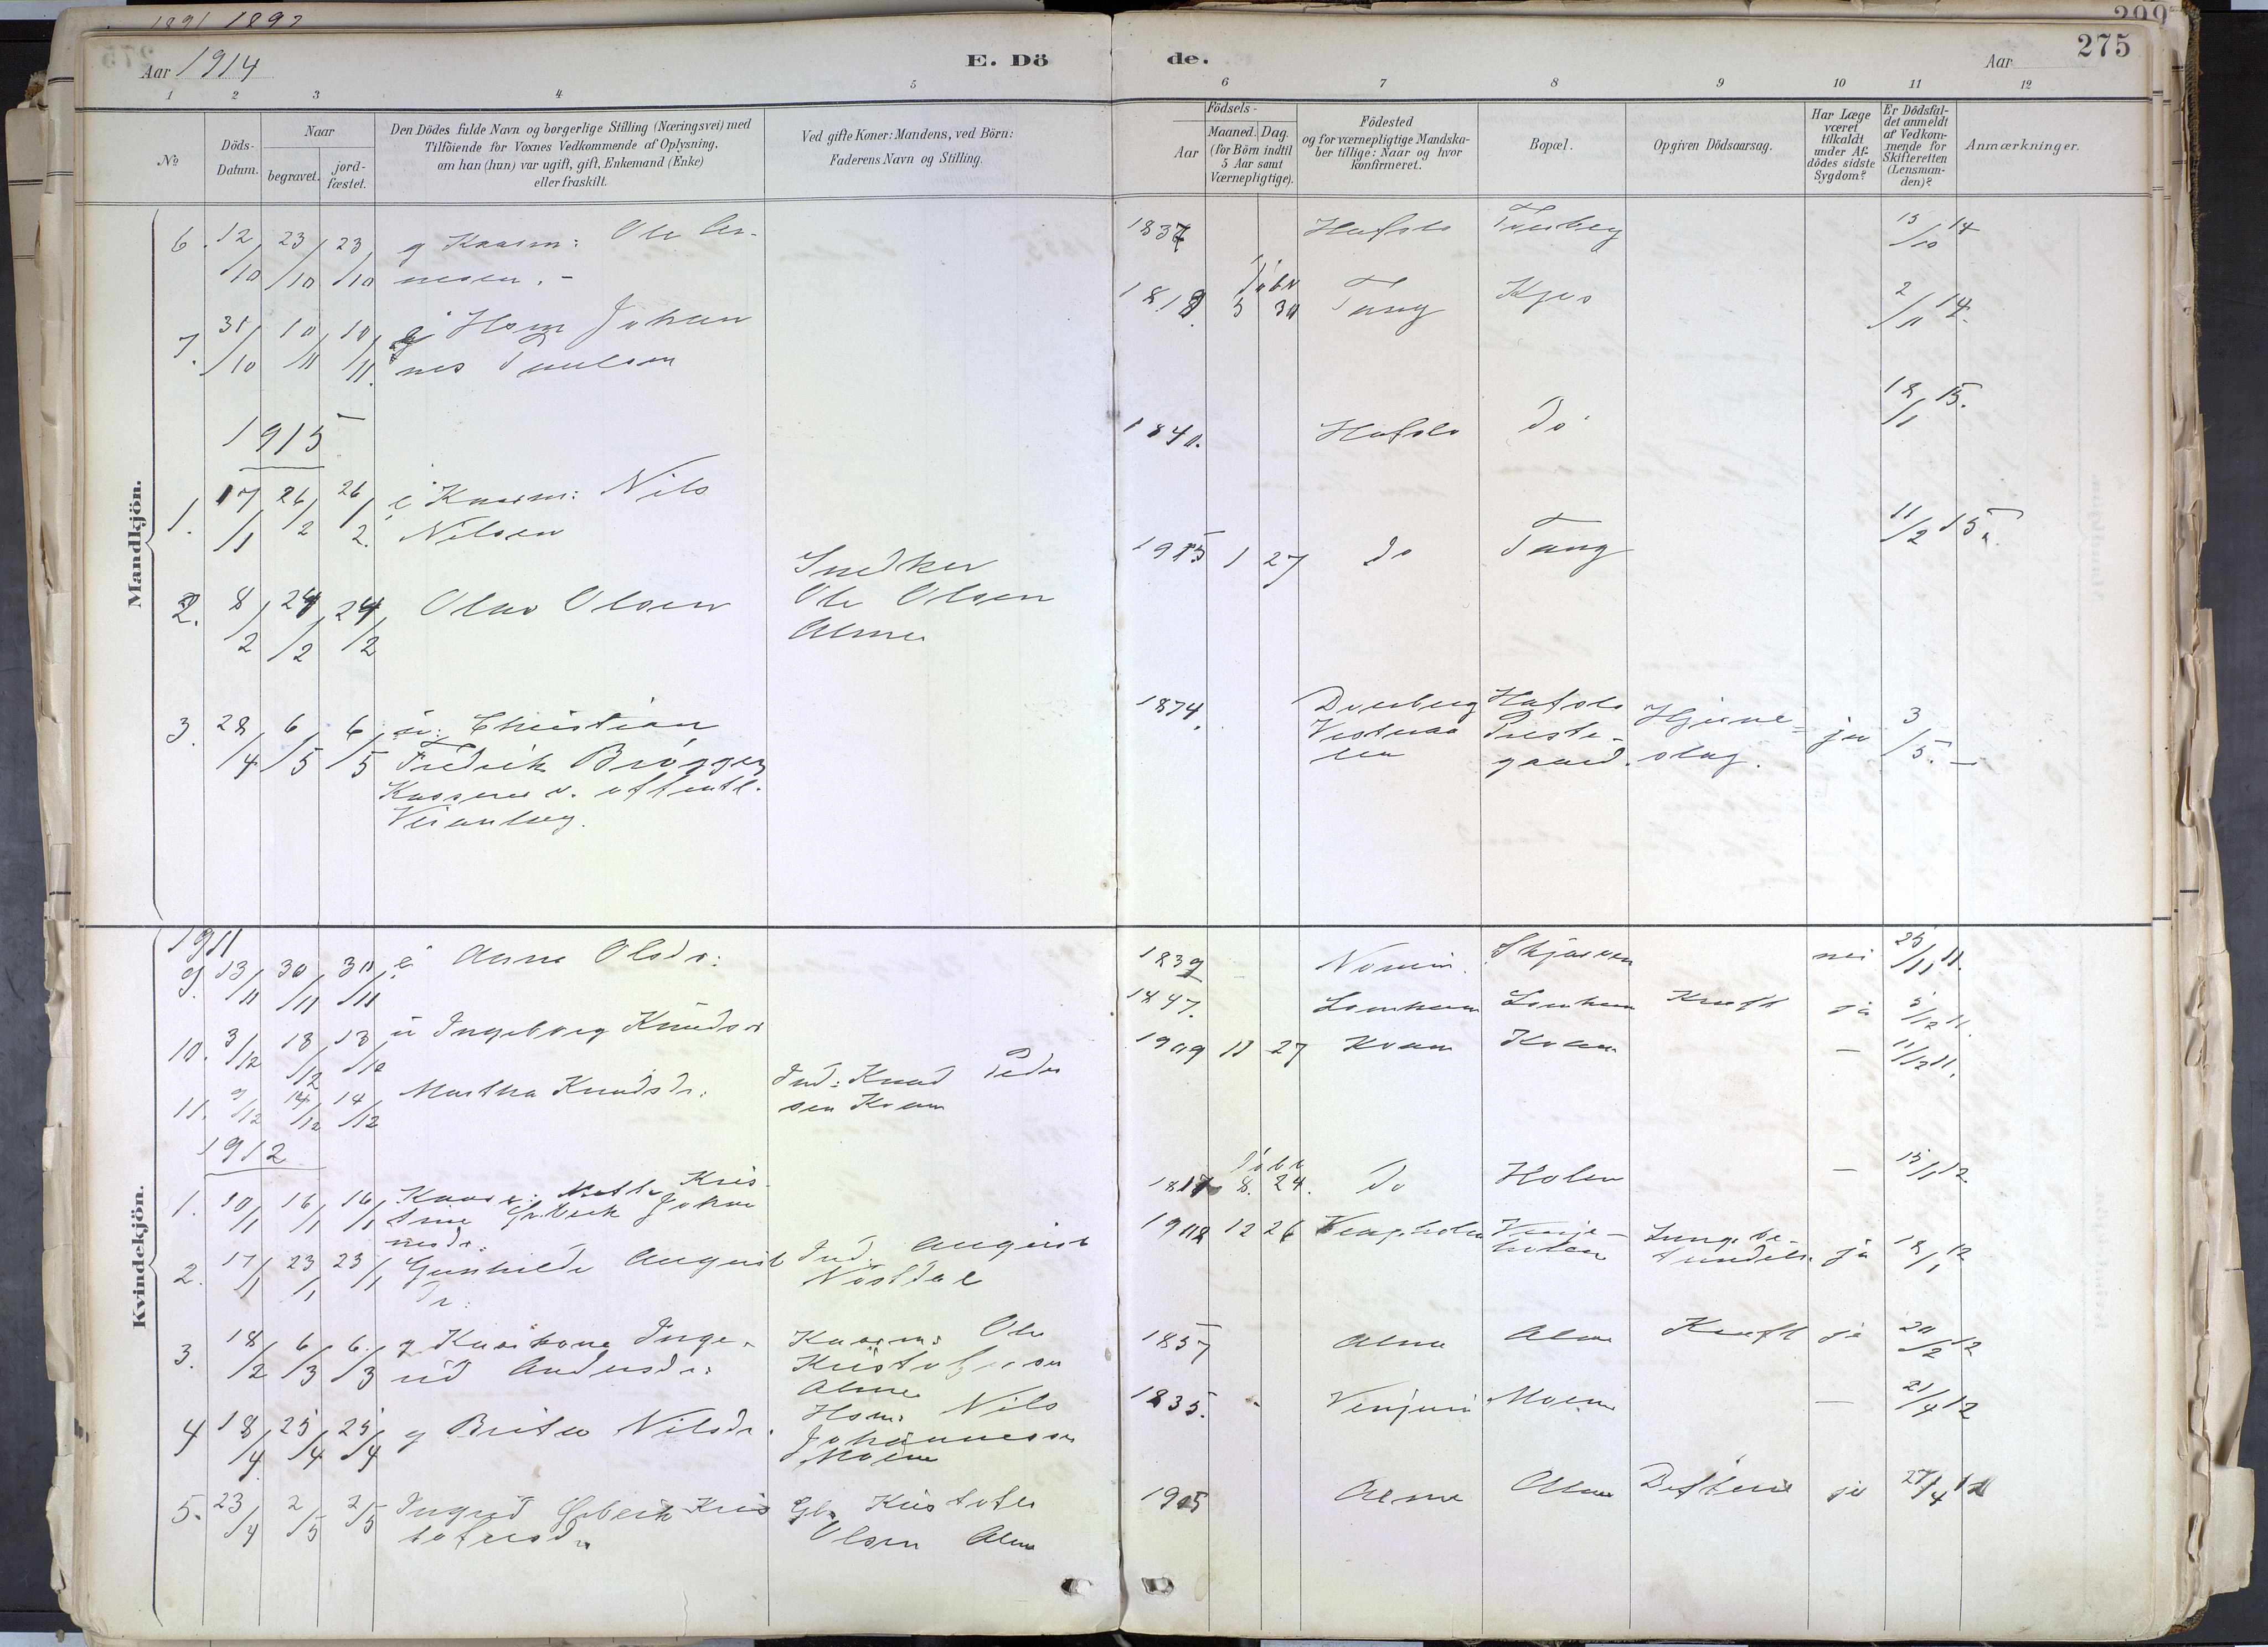 1891 1892
299
275
Aar 1914
E. Dö
de.
Aar
1 2 3 4 5 6 7 8 9 10 11 12
No
Döds-
Datum.
Naar
begravet.
jord-
fæstet.
Den Dödes fulde Navn og borgerlige Stilling (Næringsvei) med
Tilföiende for Voxnes Vedkommende af Oplysning,
om han (hun) var ugift, gift, Enkemand (Enke)
eller fraskilt.
Ved gifte Koner: Mandens, ved Börn:
Faderens Navn og Stilling.
Födsels-
Aar
Maaned. Dag.
(for Börn indtil
5 Aar samt
Værnepligtige).
Födested
og for værnepligtige Mandska-
ber tillige: Naar og hvor
konfirmeret.
Bopæl.
Opgiven Dödsaarsag.
Har Læge
været
tilkaldt
under Af-
dödes sidste
Sygdom?
Er Dödsfal-
det anmeldt
af Vedkom-
mende for
Skifteretten
(Lensman-
den)?
Anmærkninger.
Mandkjön.
6. 12/10 23/10 23/10 g Kaarm: Ole
nesen. - 1837 Hafslo 13/10 14
7. 31/10 10/11 10/11 Hsm Johan
nes 1818 Døbt 30 Tang Kjos 2/11 14
1915
1. 17/1 26/2 26/2 e Kaarm: Nils
Nilsen 1840. Hafslo Do 18/1 15.
2. 8/2 24/2 24/2 Olav Olsen
Snedker
Ole Olsen
Alme
1915 1 27 do Tang 11/2 15
3. 28/4 6/5 6/5 u: Christian
Fredrik Brøgger
Kasserer v. offentl.
Veianlæg.
1874. Hafslo
Preste-
gaard. Hjerne-
slag. ja 3/5. -
Kvindekjön.
1911
9. 13/11 30/11 30/11 e Anna Olsdr: 1839 Skjærven nei 25/11 11.
10. 3/12 13/12 13/12 u Ingeborg Knudsdr 1847. Kræft ja 5/12 11.
11. 9/12 14/12 14/12 Martha Knudsdr: Ind: Knud Peder
sen Kvam 1909 11 27 Kvam Kvam - 11/12 11.
1912
1. 10/1 16/1 16/1 Mette Kris
tine Johan
nesdr: 1817 Døbt 8. 24. Do Holen - 15/1 12
2. 17/1 23/1 23/1 Gunhilde August
dr: Ind. August
Nøstdal 1908 12 26 Lungebe-
tændelse ja 18/1 12
3. 18/2 6/3 6/3 g Kaarkone Inge-
rid Andersdr: Kaarm: Ole
Kristofersen
Alme 1857 Alme Alme Kræft ja 20/2 12
4 18/4 25/4 25/4 g Brita Nilsdr. Hsm: Nils
Johannessen
Moen 1835. Moen - 21/4 12
5. 23/4 2/5 2/5 Ingrid Kris
tofersdr. Gbr Kristofer
Olsen Alme 1905 Alme Alme Difteri ja 27/4 12